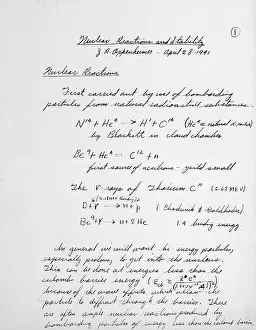 ①
Nuclear Reactions and Stability
J. R. Oppenheimer - April 28 - 1941
Nuclear Reactions
First carried out by use of bombarding
particles from natural radioactive substances.
N¹⁴ + He⁴ → H¹ + O¹⁷ (He⁴ = natural α rays)
by Blackett in cloud chamber
Be⁹ + He⁴ = C¹² + n
first source of neutrons - yield small
The γ-rays of Thorium C" (2.62 MEV)
D + γ → n + p (Chadwick & Goldhaber)
Be⁹ + γ → n + 2He 1.6 binding energy
In general we will want hi energy particles,
especially protons, to get into the nucleus.
This can be done at energies less than the
coulomb barrier energy
because of the wave effects which allow the
particle to diffract through the barrier. There
are often ample nuclear reactions produced by
bombarding particles of energy less than the coulomb barrier.